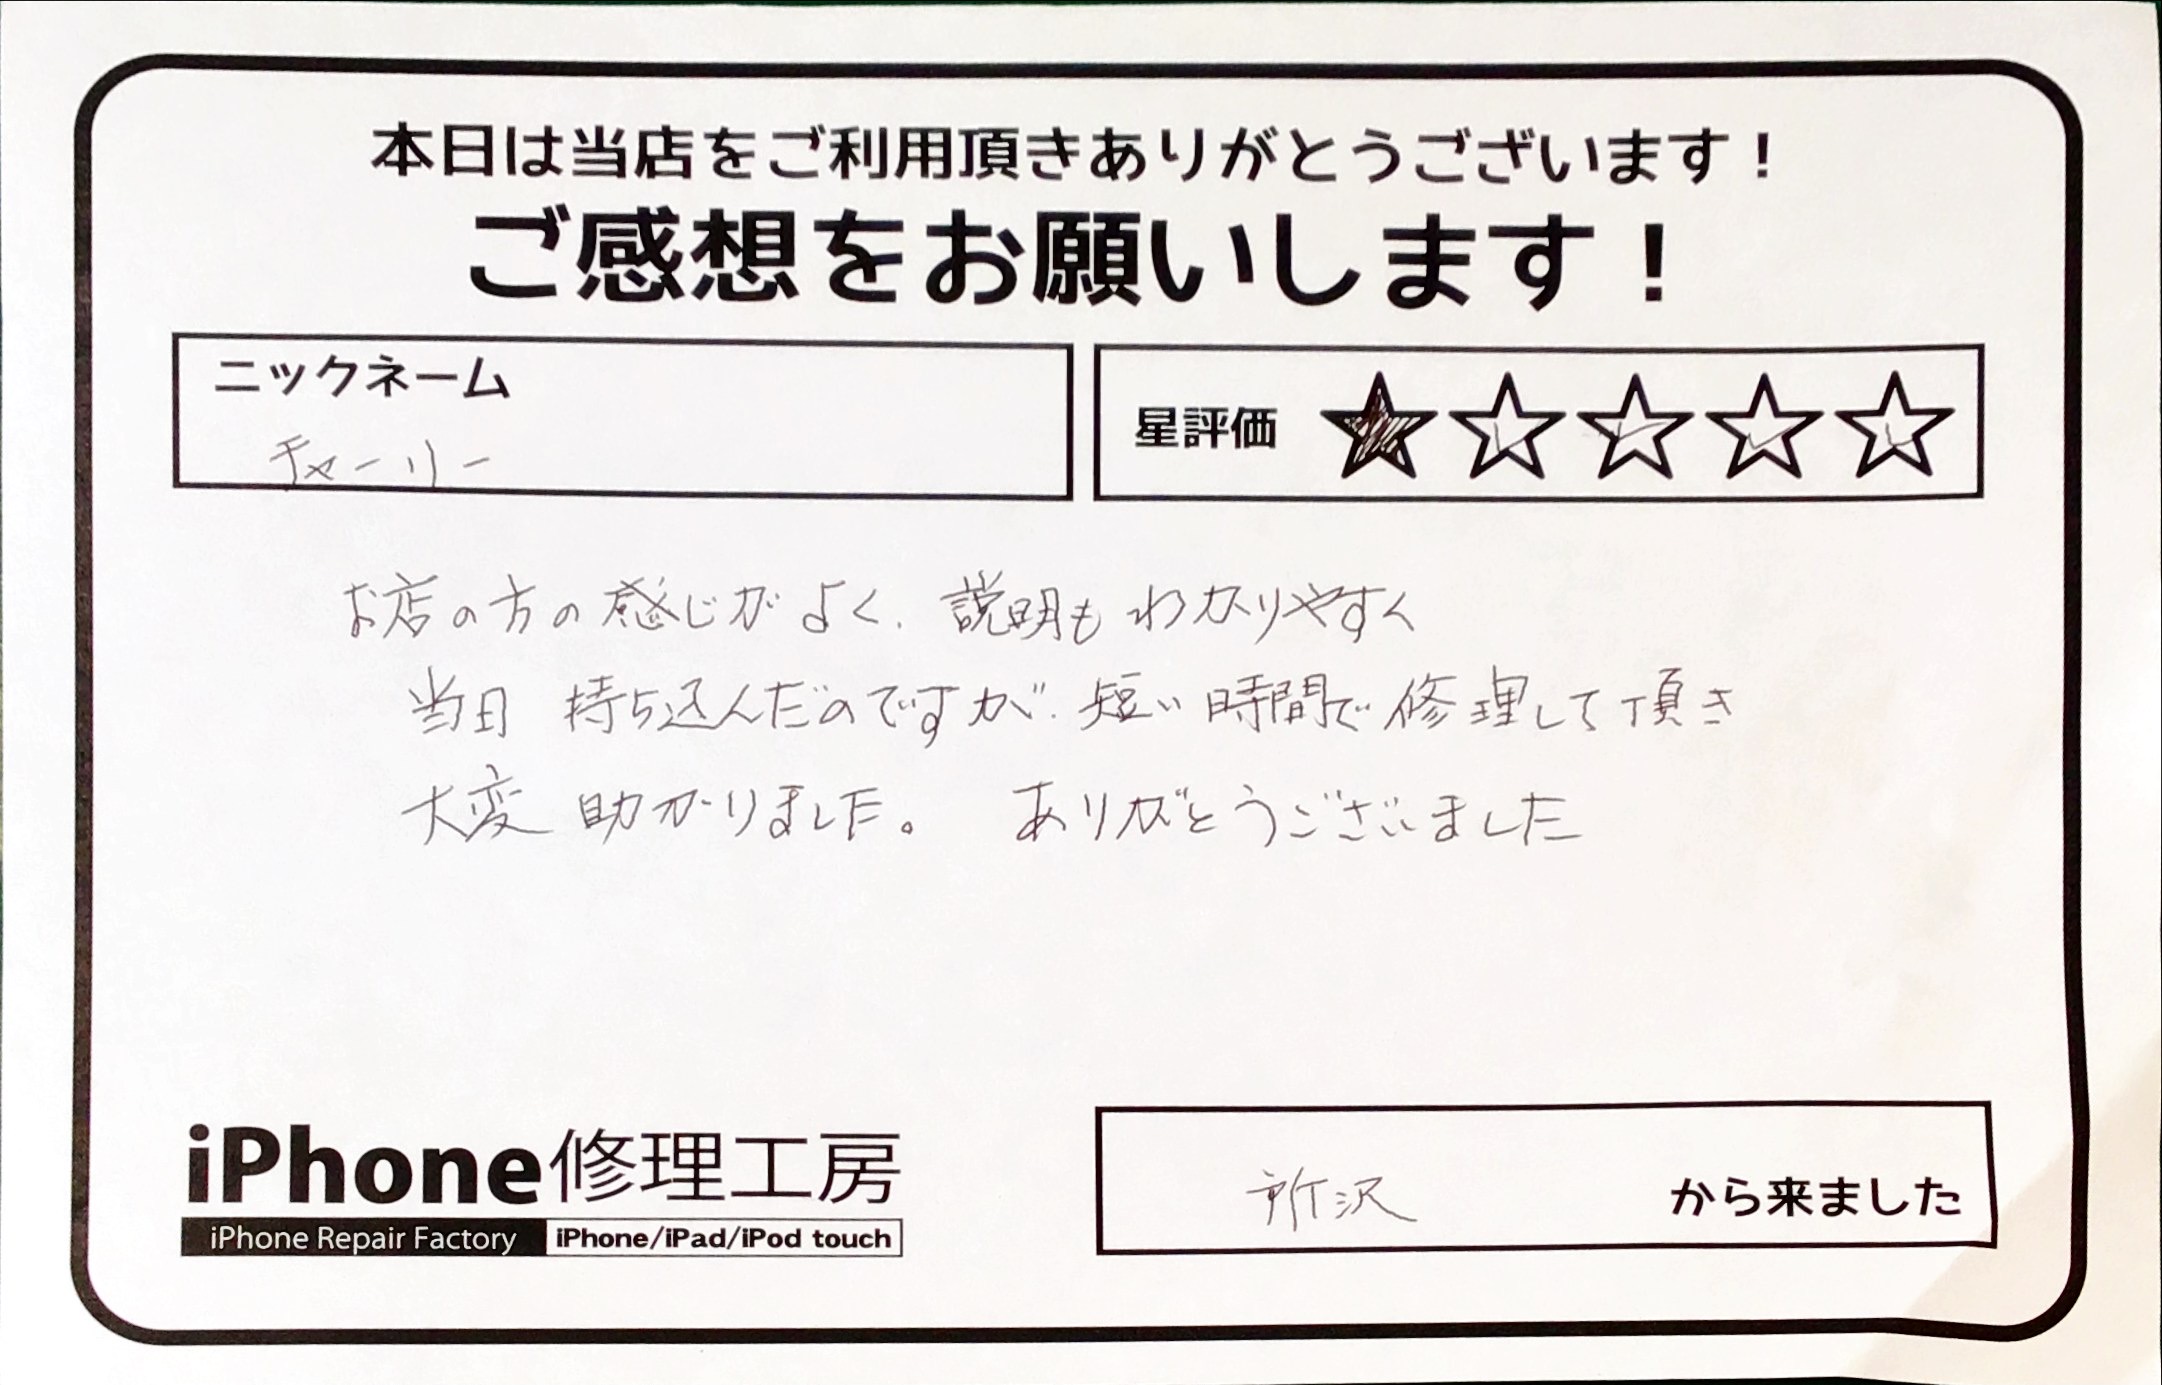 本日は当店をご利用頂きありがとうございます！
ご感想をお願いします！
ニックネーム
チャーリー
星評価 ★☆☆☆☆
お店の方の感じがよく、説明もわかりやすく
当日 持ち込んだのですが、短い時間で修理して頂き
大変 助かりました。 ありがとうございました
iPhone修理工房
iPhone Repair Factory iPhone/iPad/iPod touch
所沢 から来ました